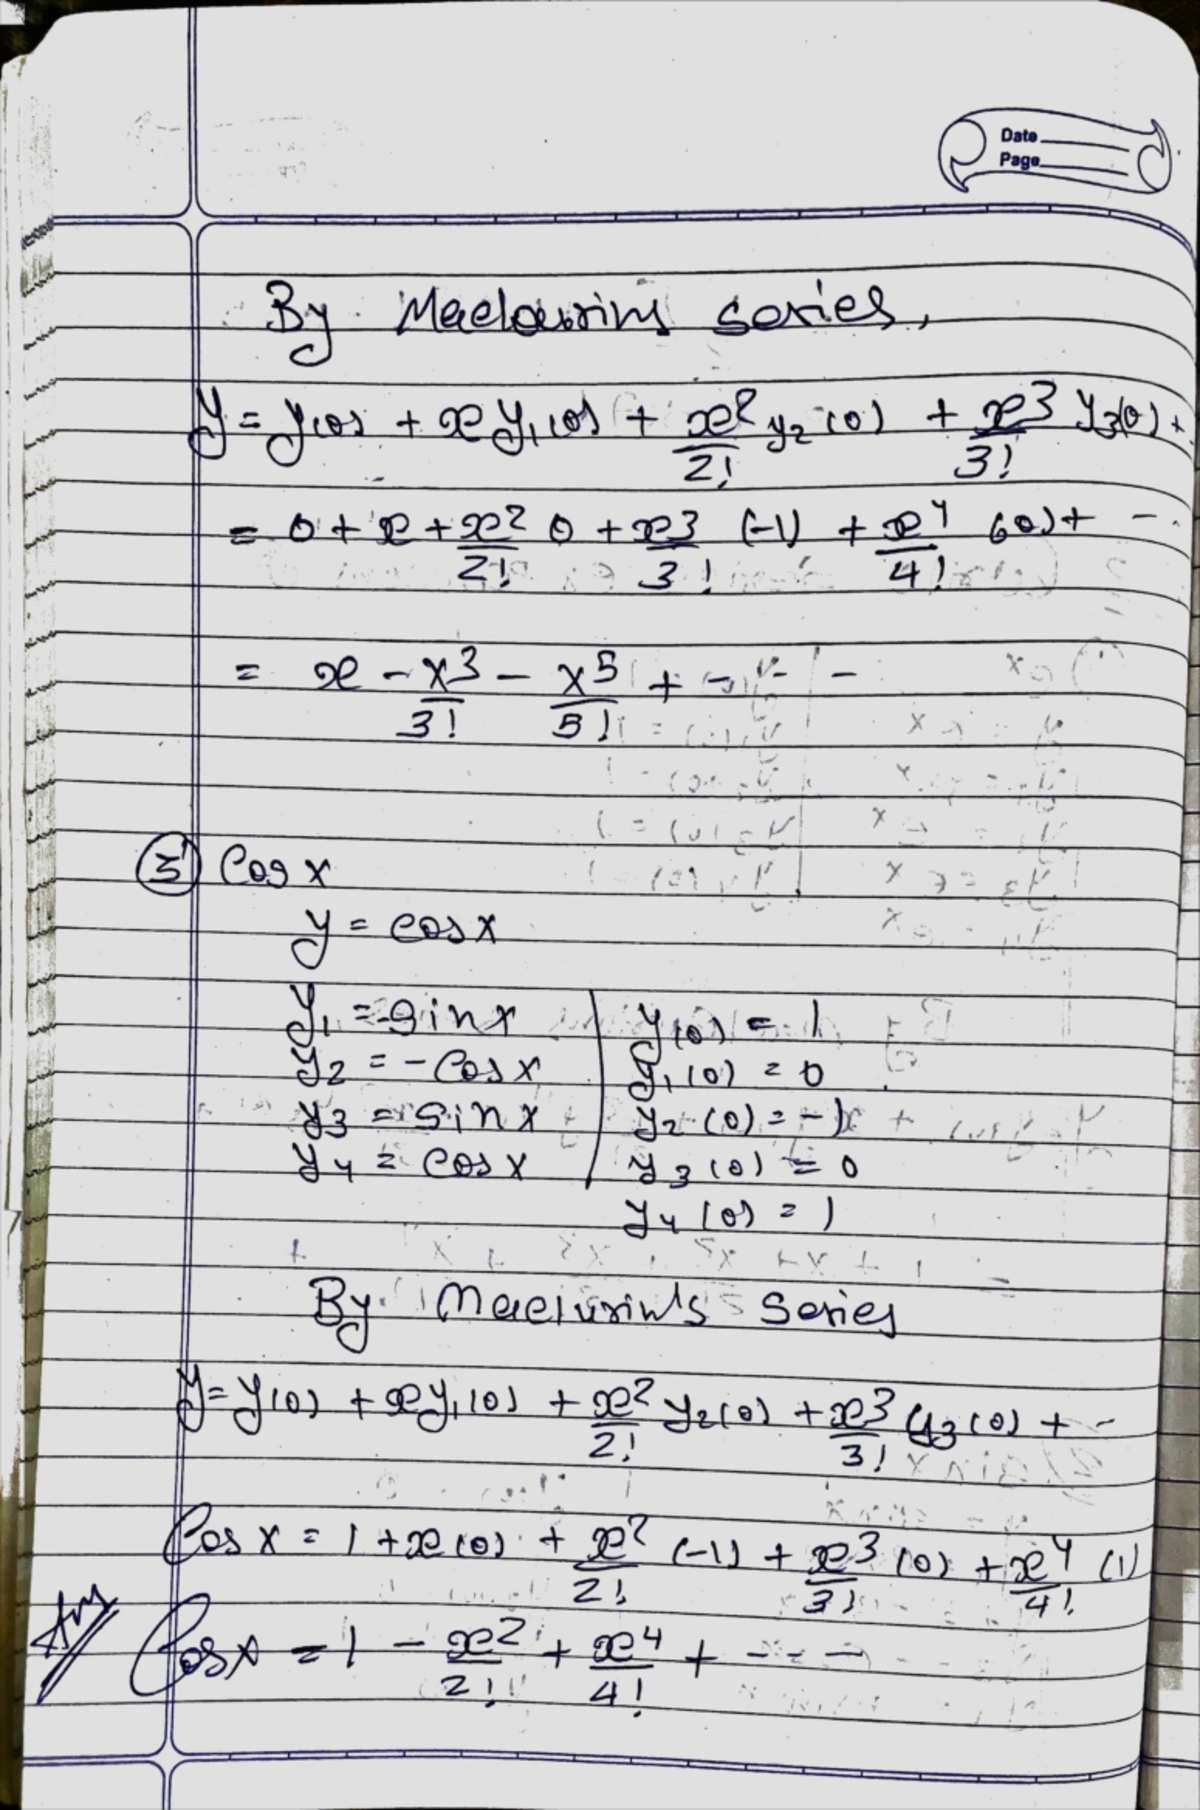 Date
Page
By Maclaurins series,
y = y(0) + x y₁(0) + x²/2! y₂(0) + x³/3! y₃(0) +
= 0 + x + x²/2! 0 + x³/3! (-1) + x⁴/4! (0) + - -
= x - x³/3! - x⁵/5! + - - - -
③ Cos x
y = cos x
y₁ = -sin x | y(0) = 1
y₂ = - cos x | y₁(0) = 0
y₃ = sin x | y₂(0) = -1
y₄ = cos x | y₃(0) = 0
y₄(0) = 1
By Maclurin's Series
y = y(0) + x y₁(0) + x²/2! y₂(0) + x³/3! y₃(0) + -
Cos x = 1 + x(0) + x²/2! (-1) + x³/3! (0) + x⁴/4! (1)
Ans Cos x = 1 - x²/2! + x⁴/4! + - - - -